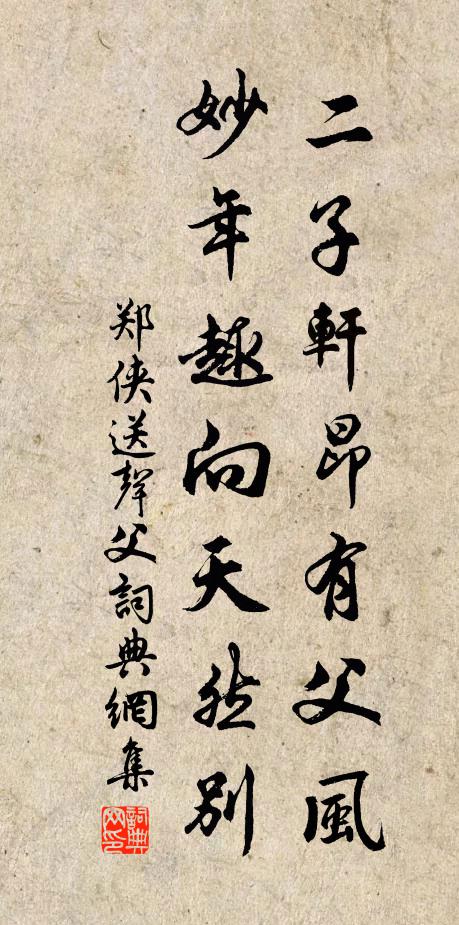 二子軒昂有父風
妙年趣向天然別
郑侠送聲父詞典網集
詞典网印